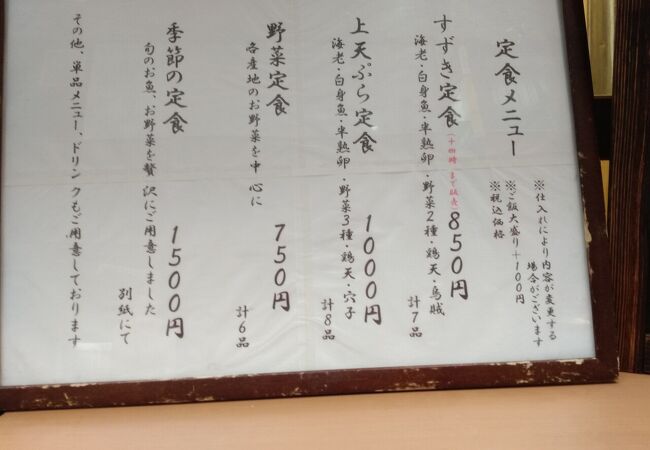 定食メニュー
※仕入れにより内容が変更する
場合がございます
※ご飯大盛り+100円
※税込価格
すずき定食
まで販売)
850円
海老・白身魚・半熟卵・野菜2種・鶏天・烏賊
計7品
上天ぷら定食
1000円
海老・白身魚・半熟卵・野菜3種・鶏天・穴子
計8品
野菜定食
750円
各産地のお野菜を中心に
計6品
季節の定食
1500円
旬のお魚、お野菜を贅沢にご用意しました
別紙にて
その他、単品メニュー、ドリンクもご用意しております